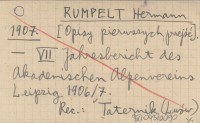 RUMPELT Hermann
1907. [Opisy pierwszych przejść].
— VII Jahresbericht des
Akademischen Alpenvereins
Leipzig 1906/7.
Rec.: Taternik